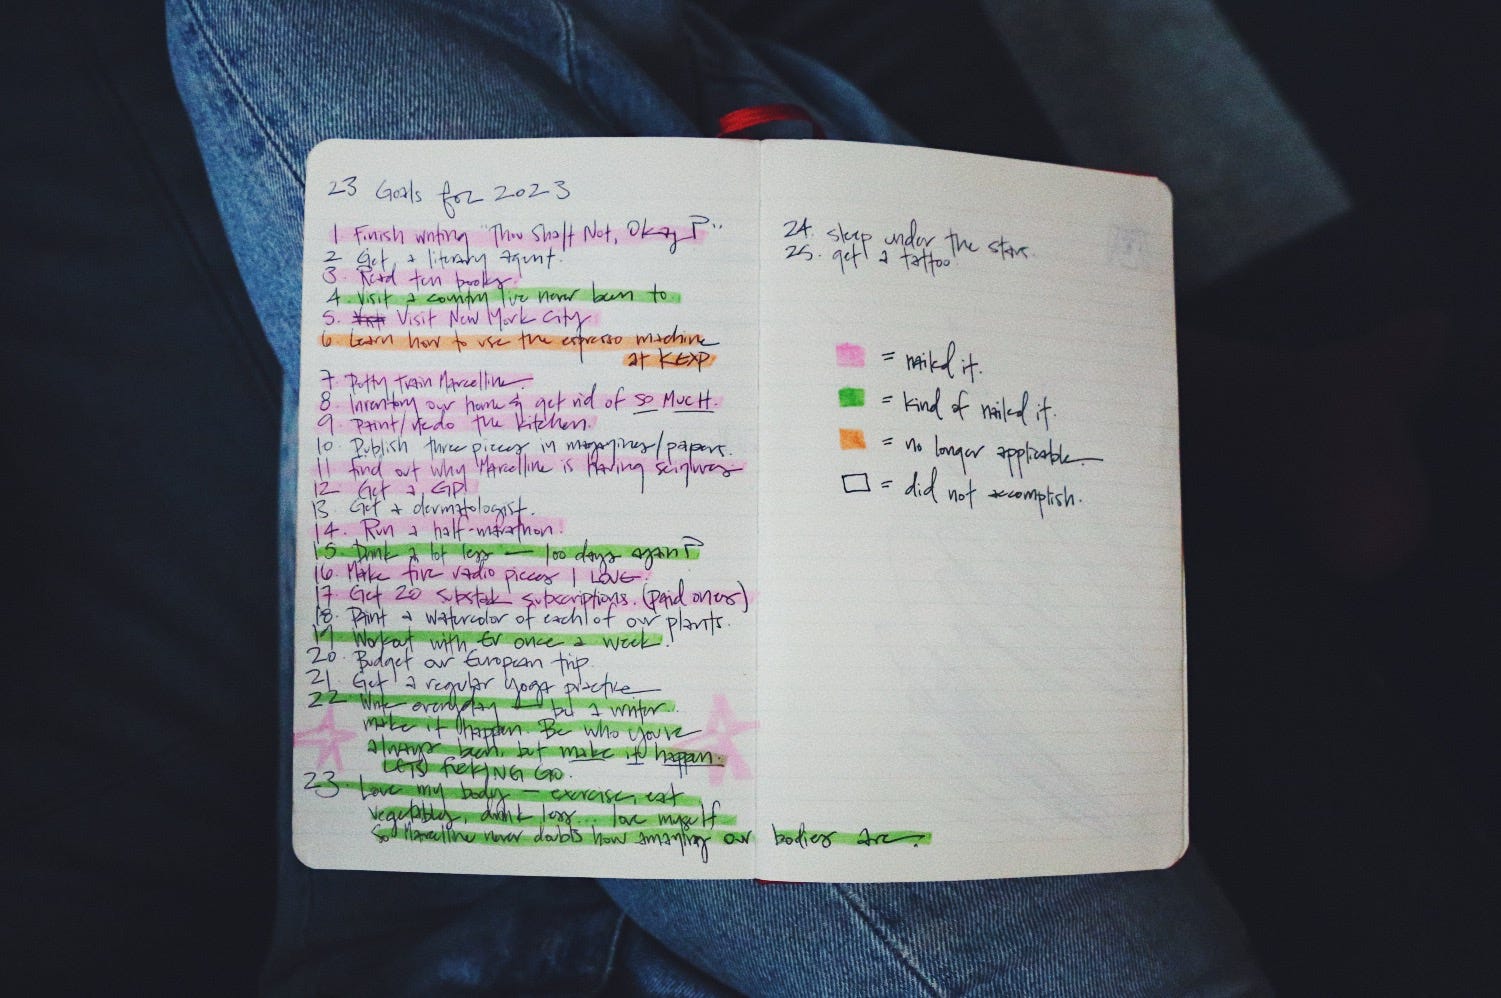 23 Goals for 2023
1 Finish writing "Thou Shalt Not, Okay?"
2 Get a literary agent.
3. Read ten books.
4. Visit a country I've never been to.
5. Visit New York City
6. Learn how to use the espresso machine
at KEXP
7. Potty train Marcelline.
8. Inventory our home & get rid of SO MUCH.
9. Paint/redo the kitchen.
10. Publish three pieces in magazines/papers.
11 find out why Marcelline is having seizures
12. Get a GP!
13. Get a dermatologist.
14. Run a half-marathon.
15. Drink a lot less — 100 days again?
16. Make five radio pieces I LOVE.
17. Get 20 substack subscriptions. (paid ones)
18. Paint a watercolor of each of our plants.
19 Workout with Ev once a week.
20. Budget our European trip.
21. Get a regular yoga practice
22 Write everyday — be a writer..
make it happen. Be who you're
always been, but make it happen.
LETS FUCKING GO.
23. Love my body — exercise, eat
vegetables, drink less... love myself
so Marcelline never doubts how amazing our bodies are.
24. sleep under the stars.
25. get a tattoo.
= nailed it.
= kind of nailed it.
= no longer applicable.
= did not accomplish.